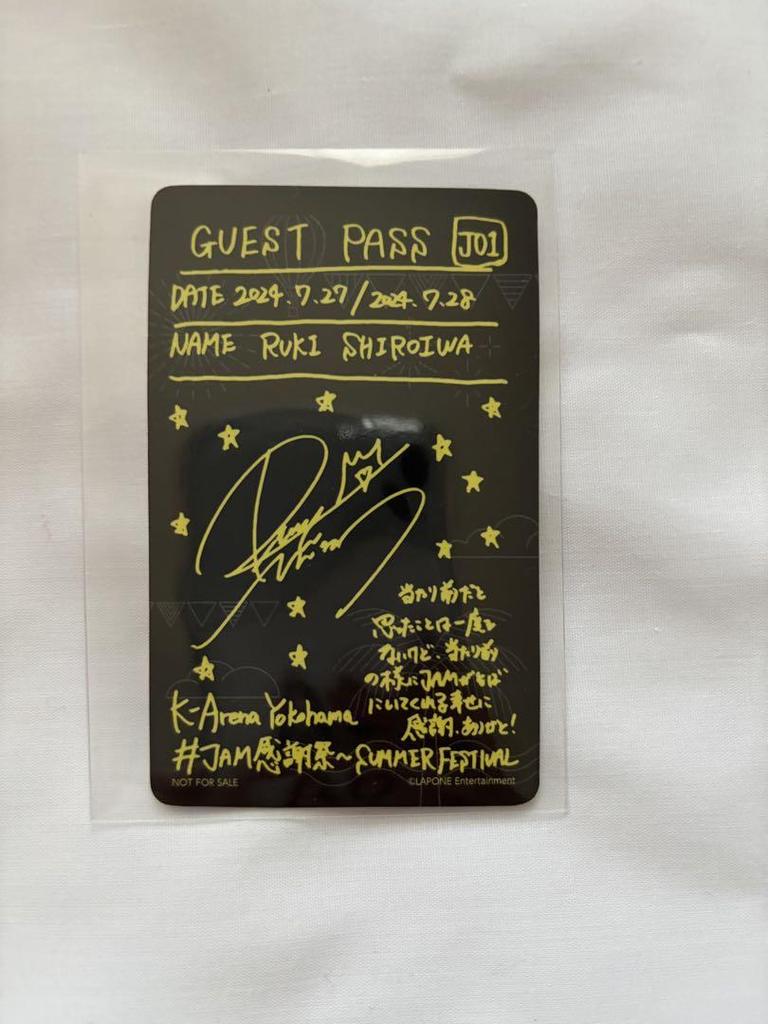 GUEST PASS JO1
DATE 2024.7.27/2024.7.28
NAME RUKI SHIROIWA
当たり前だと
思ったことは一度も
ないけど、当たり前
の様にJAMがそば
にいてくれる幸せに
感謝.ありがと!
K-Arena Yokohama
#JAM感謝祭~SUMMER FESTIVAL
NOT FOR SALE
©LAPONE Entertainment